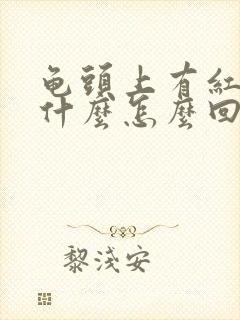 龟頭上有紅
什麼怎麼回
黎淺安